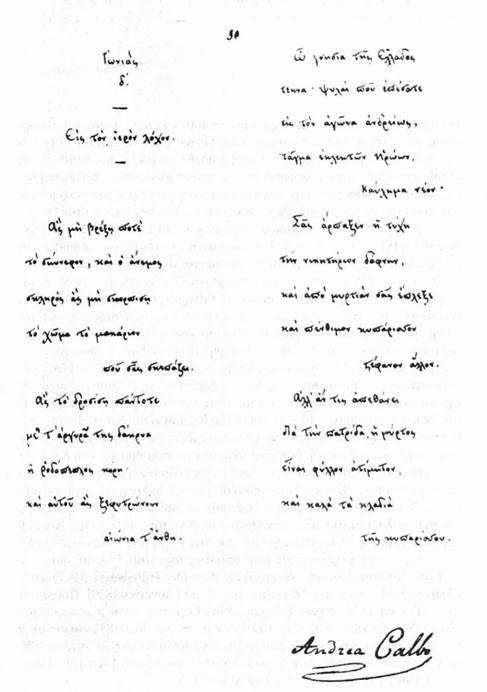 Ἰωνιὰς
δ΄.
Εἰς τὸν ἱερὸν λόχον.
Ἂς μὴ βρέξῃ ποτὲ
τὸ σύννεφον, καὶ ὁ ἄνεμος
σκληρὸς ἂς μὴ σκορπίσῃ
τὸ χῶμα τὸ μακάριον
ποῦ σᾶς σκεπάζει.
Ἂς τὸ δροσίσῃ πάντοτε
μὲ τ' ἀργυρᾶ της δάκρυα
ἡ ροδόπεπλος κόρη·
καὶ αὐτοῦ ἂς ξεφυτρώνουν
αἰώνια τ' ἄνθη.
Ὦ γνησια τῆς Ελλαδος
τεκνα· ψυχαὶ ποῦ ἐπέσατε
εἰς τὸν ἀγῶνα ἀνδρείως,
τάγμα εκλεκτῶν Ἡρώων,
καύχημα νέον·
Σᾶς ἅρπαξεν ἡ τυχη
τὴν νικητήριον δάφνην,
καὶ ἀπὸ μυρτιὰν σᾶς ἔπλεξε
καὶ πένθιμον κυπάρισσον
στέφανον ἄλλον.
Αλλ' ἄν τις ἀπεθάνει
διὰ τὴν πατρίδα, ἡ μύρτος
εἶναι φύλλον ἀτίμητον,
καὶ καλὰ τὰ κλαδιὰ
τῆς κυπαρίσσου.
Andrea Calbo